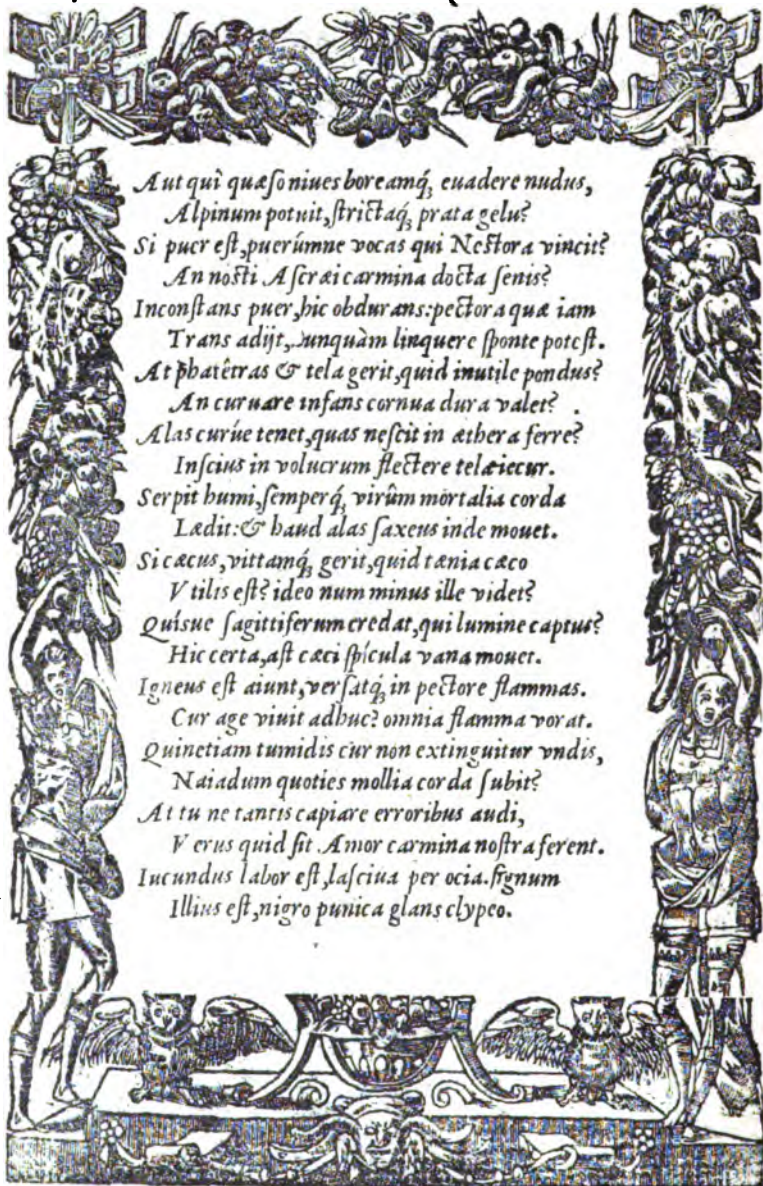 Aut quì quæso niues boreamq́; euadere nudus,
Alpinum potuit, strictaq́; prata gelu?
Si puer est, puerúmne vocas qui Nestora vincit?
An nosti Ascræi carmina docta senis?
Inconstans puer, hic obdurans: pectora quæ iam
Trans adijt, nunquàm linquere sponte potest.
At pharêtras & tela gerit, quid inutile pondus?
An curuare infans cornua dura valet?
Alas curúe tenet, quas nescit in æthera ferre?
Inscius in volucrum flectere tela iecur.
Serpit humi, semperq́; virûm mortalia corda
Lædit: & haud alas saxeus inde mouet.
Si cæcus, vittamq́; gerit, quid tænia cæco
Vtilis est? ideo num minus ille videt?
Quísue sagittiferum credat, qui lumine captus?
Hic certa, ast cæci spícula vana mouet.
Igneus est aiunt, versatq́; in pectore flammas.
Cur age viuit adhuc? omnia flamma vorat.
Quinetiam tumidis cur non extinguitur vndis,
Naiadum quoties mollia corda subit?
At tu ne tantis capiare erroribus audi,
Verus quid sit Amor carmina nostra ferent.
Iucundus labor est, lasciua per ocia. signum
Illius est, nigro punica glans clypeo.